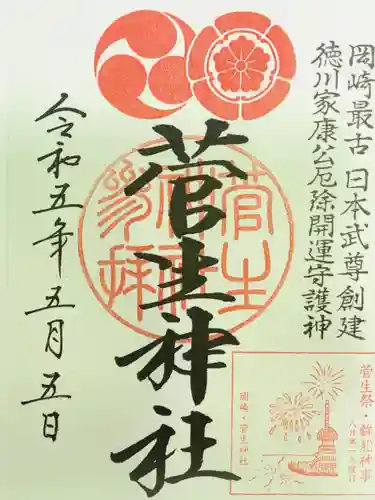 岡崎最古 日本武尊創建
徳川家康公厄除開運守護神
菅生神社
令和五年五月五日
菅生神社参拝
菅生祭・鉾船神事
岡崎・菅生神社